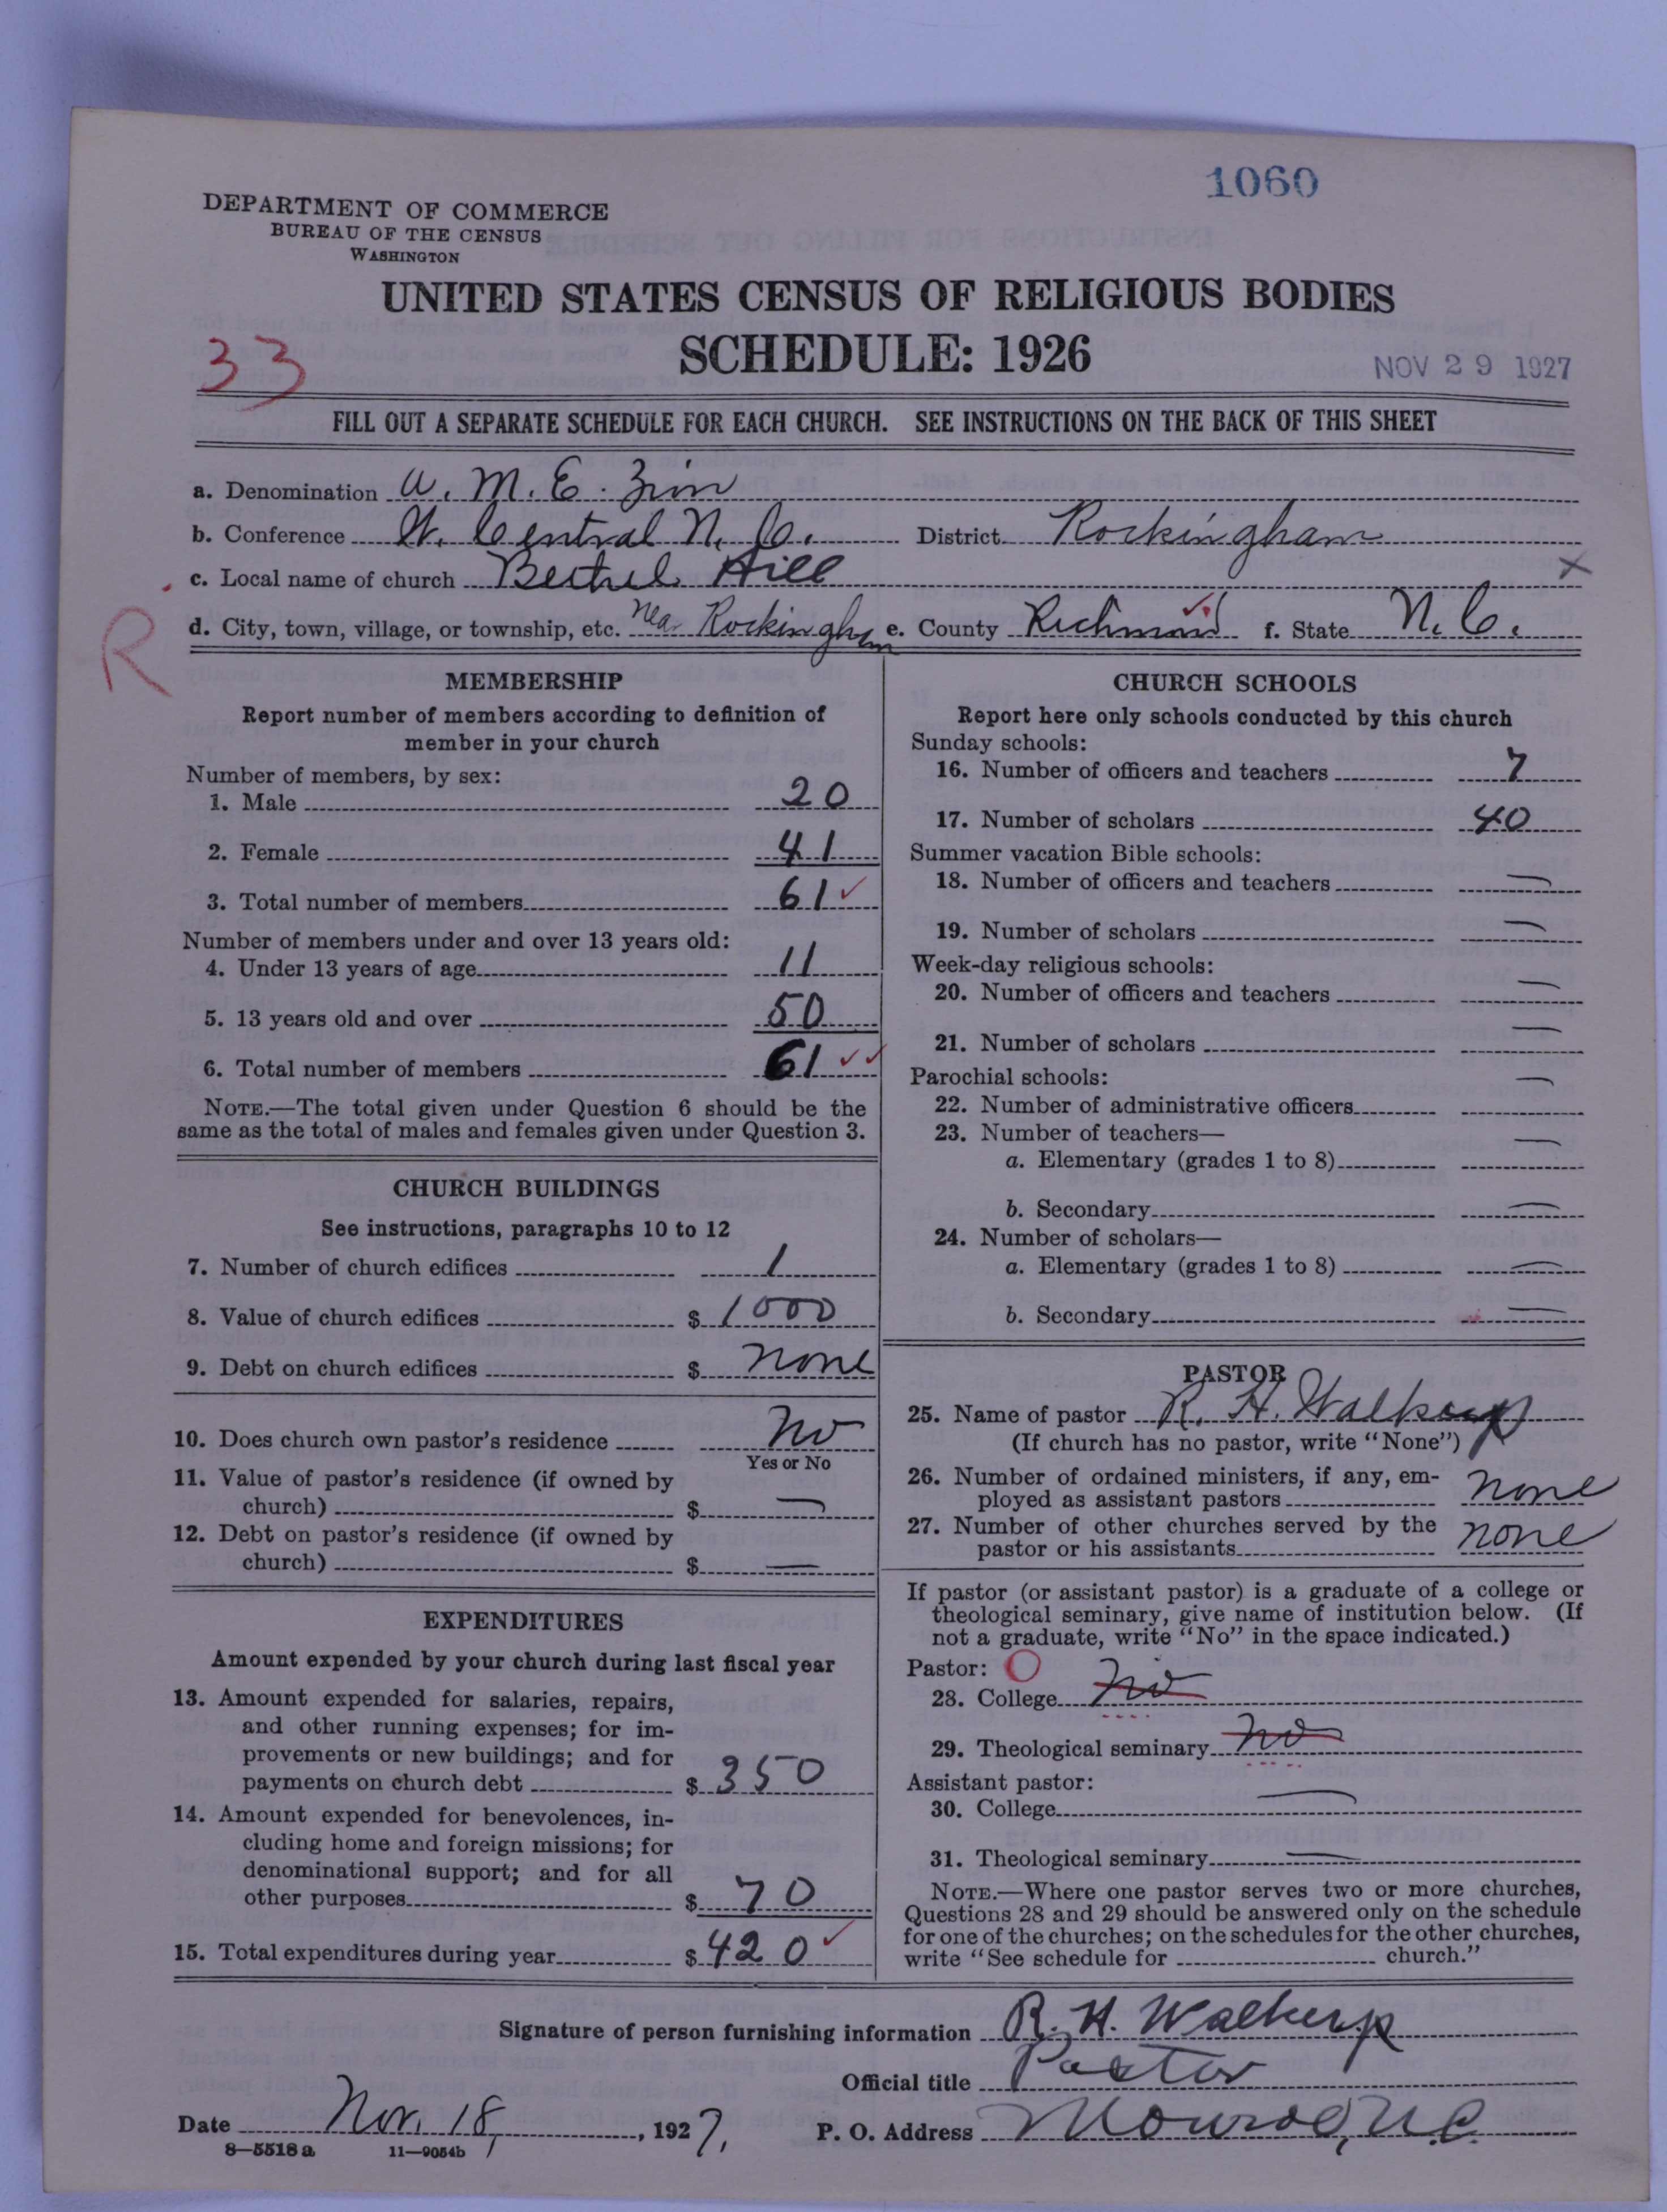 1060
DEPARTMENT OF COMMERCE
BUREAU OF THE CENSUS
WASHINGTON
UNITED STATES CENSUS OF RELIGIOUS BODIES
SCHEDULE: 1926
33
NOV 29 1927
FILL OUT A SEPARATE SCHEDULE FOR EACH CHURCH. SEE INSTRUCTIONS ON THE BACK OF THIS SHEET
a. Denomination A. M. E. Zion
b. Conference W. Central N. C. District Rockingham
c. Local name of church Bethel Hill X
R
d. City, town, village, or township, etc. near Rockingham e. County Richmond f. State N. C.
MEMBERSHIP
Report number of members according to definition of
member in your church
Number of members, by sex:
1. Male 20
2. Female 41
3. Total number of members 61 ✓
Number of members under and over 13 years old:
4. Under 13 years of age 11
5. 13 years old and over 50
6. Total number of members 61 ✓✓
NOTE.—The total given under Question 6 should be the
same as the total of males and females given under Question 3.
CHURCH BUILDINGS
See instructions, paragraphs 10 to 12
7. Number of church edifices 1
8. Value of church edifices $ 1000
9. Debt on church edifices $ none
10. Does church own pastor's residence No
Yes or No
11. Value of pastor's residence (if owned by
church) $ —
12. Debt on pastor's residence (if owned by
church) $ —
EXPENDITURES
Amount expended by your church during last fiscal year
13. Amount expended for salaries, repairs,
and other running expenses; for im-
provements or new buildings; and for
payments on church debt $ 350
14. Amount expended for benevolences, in-
cluding home and foreign missions; for
denominational support; and for all
other purposes $ 70
15. Total expenditures during year $ 420 ✓
CHURCH SCHOOLS
Report here only schools conducted by this church
Sunday schools:
16. Number of officers and teachers 7
17. Number of scholars 40
Summer vacation Bible schools:
18. Number of officers and teachers —
19. Number of scholars —
Week-day religious schools:
20. Number of officers and teachers —
21. Number of scholars —
Parochial schools:
22. Number of administrative officers —
23. Number of teachers—
a. Elementary (grades 1 to 8) —
b. Secondary —
24. Number of scholars—
a. Elementary (grades 1 to 8) —
b. Secondary —
PASTOR
25. Name of pastor R. H. Walkup
(If church has no pastor, write "None")
26. Number of ordained ministers, if any, em-
ployed as assistant pastors none
27. Number of other churches served by the
pastor or his assistants none
If pastor (or assistant pastor) is a graduate of a college or
theological seminary, give name of institution below. (If
not a graduate, write "No" in the space indicated.)
Pastor: O
28. College No
29. Theological seminary No
Assistant pastor:
30. College —
31. Theological seminary —
NOTE.—Where one pastor serves two or more churches,
Questions 28 and 29 should be answered only on the schedule
for one of the churches; on the schedules for the other churches,
write "See schedule for church."
Signature of person furnishing information R. H. Walkup
Official title Pastor
Date Nov. 18, 1927. P. O. Address Monroe, N.C.
8—5518a 11—9054b